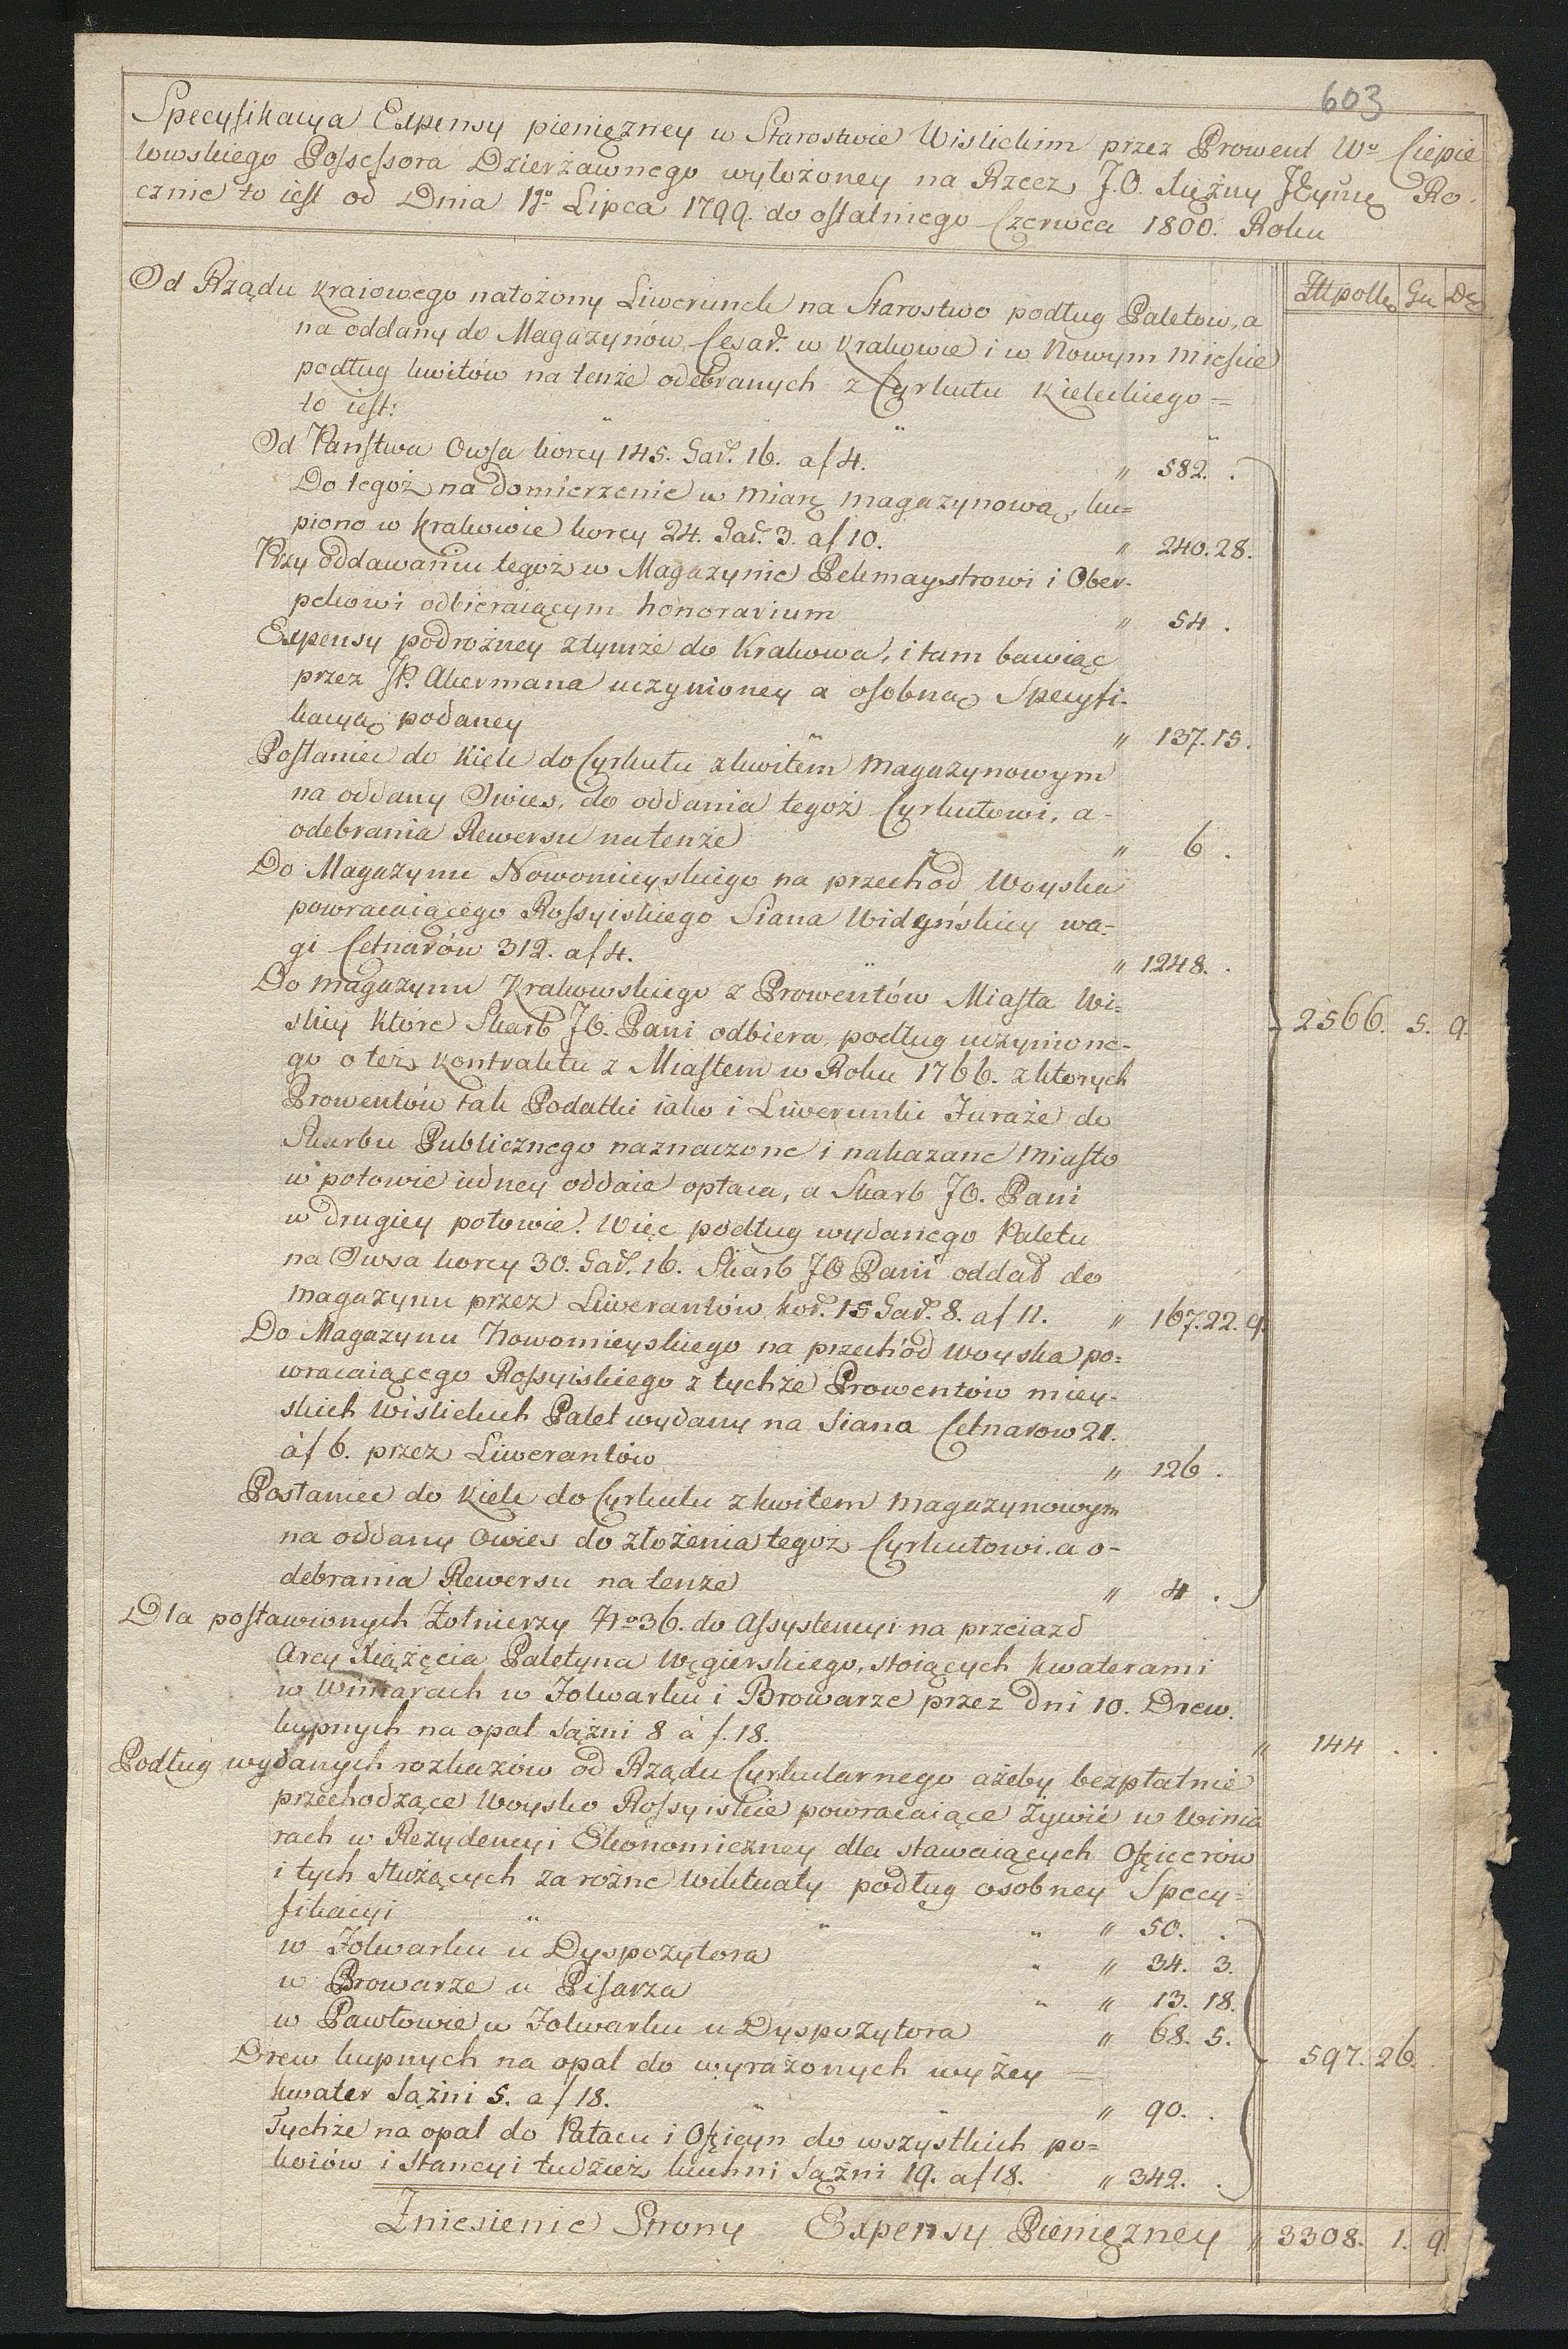 603
Specyfikacya Expensy pieniężney w Starostwie Wislickim przez Prowent Wo Ciepie
lowskiego Possessora Dzierżawnego wyłożoney na Rzecz J.O. Xiężny JEymę Ro-
cznie to iest od Dnia 1go Lipca 1799. do ostatniego Czerwca 1800. Roku
Złł polkę Gr Dę
Od Rządu kraiowego nałożony Liwerunek na Starostwo podług Paletow, a
na oddany do Magazynów Cesar. w Krakowie i w Nowym Mieście
podług kwitów na tenże odebranych z Cyrkułu Kieleckiego =
to iest:
Od Państwa Owsa korcy 145. Gar. 16. a f 4. " 582. .
Do tegoż na domierzenie w miarę magazynową, ku=
piono w Krakowie korcy 24. Gar. 3. a f 10. " 240. 28.
Przy oddawaniu tegoż w Magazynie Pekmaystrowi i Ober-
pekowi odbieraiącym honorarium " 54 .
Expensy podrożney z tymże do Krakowa, i tam bawiąc
przez JP. Akermana uczynioney a osobną Specyfi-
kacyą podaney " 137. 15.
Posłaniec do Kielc do Cyrkułu z kwitem Magazynowym
na oddany Owies, do oddania tegoż Cyrkułowi, a-
odebrania Rewersu na tenże " 6 .
Do Magazynu Nowomieyskiego na przechod Woyska
powracaiącego Rossyiskiego Siana Widyńskiey wa-
gi Cetnarów 312. a f 4. " 1248. .
Do magazynu Krakowskiego z Prowentów Miasta Wi=
ślicy które Skarb JO. Pani odbiera, podług uczynione-
go o też kontraktu z Miastem w Roku 1766. z ktorych
2566. 5. 9.
Prowentów tak Podatki iako i Liwerunki Furaże do
Skarbu Publicznego naznaczone i nakazane Miasto
w połowie iedney oddaie opłaca, a Skarb JO. Pani
w drugiey połowie. Więc podług wydanego Paletu
na Owsa korcy 30. Gar. 16. Skarb JO Pani oddał do
magazynu przez Liwerantów kor. 15 Gar. 8. a f 11. " 167. 22. 9.
Do Magazynu Nowomieyskiego na przechód Woyska po=
wracaiącego Rossyiskiego z tychże Prowentów miey-
skich Wislickich Palet wydany na Siana Cetnarow 21.
à f 6. przez Liwerantów " 126 .
Posłaniec do Kielc do Cyrkułu z kwitem Magazynowym
na oddany Owies do złożenia tegoż Cyrkułowi. a o-
debrania Rewersu na tenże " 4 .
Dla postawionych Żołnierzy No 36. do Assystencyi na przeiazd
Arcy Xiążęcia Paletyna Węgierskiego, stoiących kwaterami
w Winiarach w Folwarku i Browarze przez dni 10. Drew.
kupnych na opał Sążni 8 à f. 18. " 144 . .
Podług wydanych rozkazów od Rządu Cyrkularnego ażeby bezpłatnie
przechodzące Woysko Rossyiskie powracaiące Żywić w Winia
rach w Rezydencyi Ekonomiczney dla stawaiących Officerów
i tych służących za rożne wiktuały podług osobney Specy=
fikacyi " " " " 50. .
w Folwarku u Dyspozytora " " 34. 3.
w Browarze u Pisarza " " 13. 18.
w Pawłowie w Folwarku u Dyspozytora " 68. 5.
597. 26.
Drew kupnych na opał do wyrażonych wyżey =
kwater Sążni 5. a f 18. " 90. .
Tychże na opał do Pałacu i Officyn do wszystkich po=
koiów i Stancyi tudzież kuchni Sążni 19. a f 18. " 342. .
Zniesienie Strony Expensy Pieniężney " 3308. 1. 9